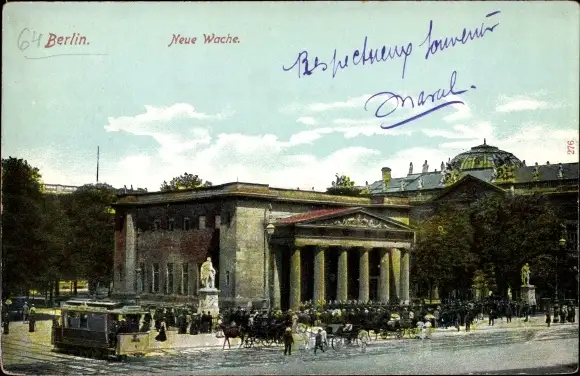 64 Berlin.
Neue Wache.
Respectueux souvenir
276.